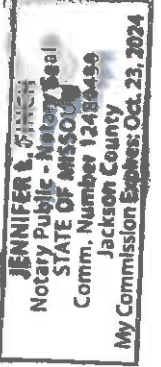 JENNIFER L. FINCH
Notary Public - Notary Seal
STATE OF MISSOURI
Comm. Number
Jackson County
My Commission Expires: Oct. 23, 2024